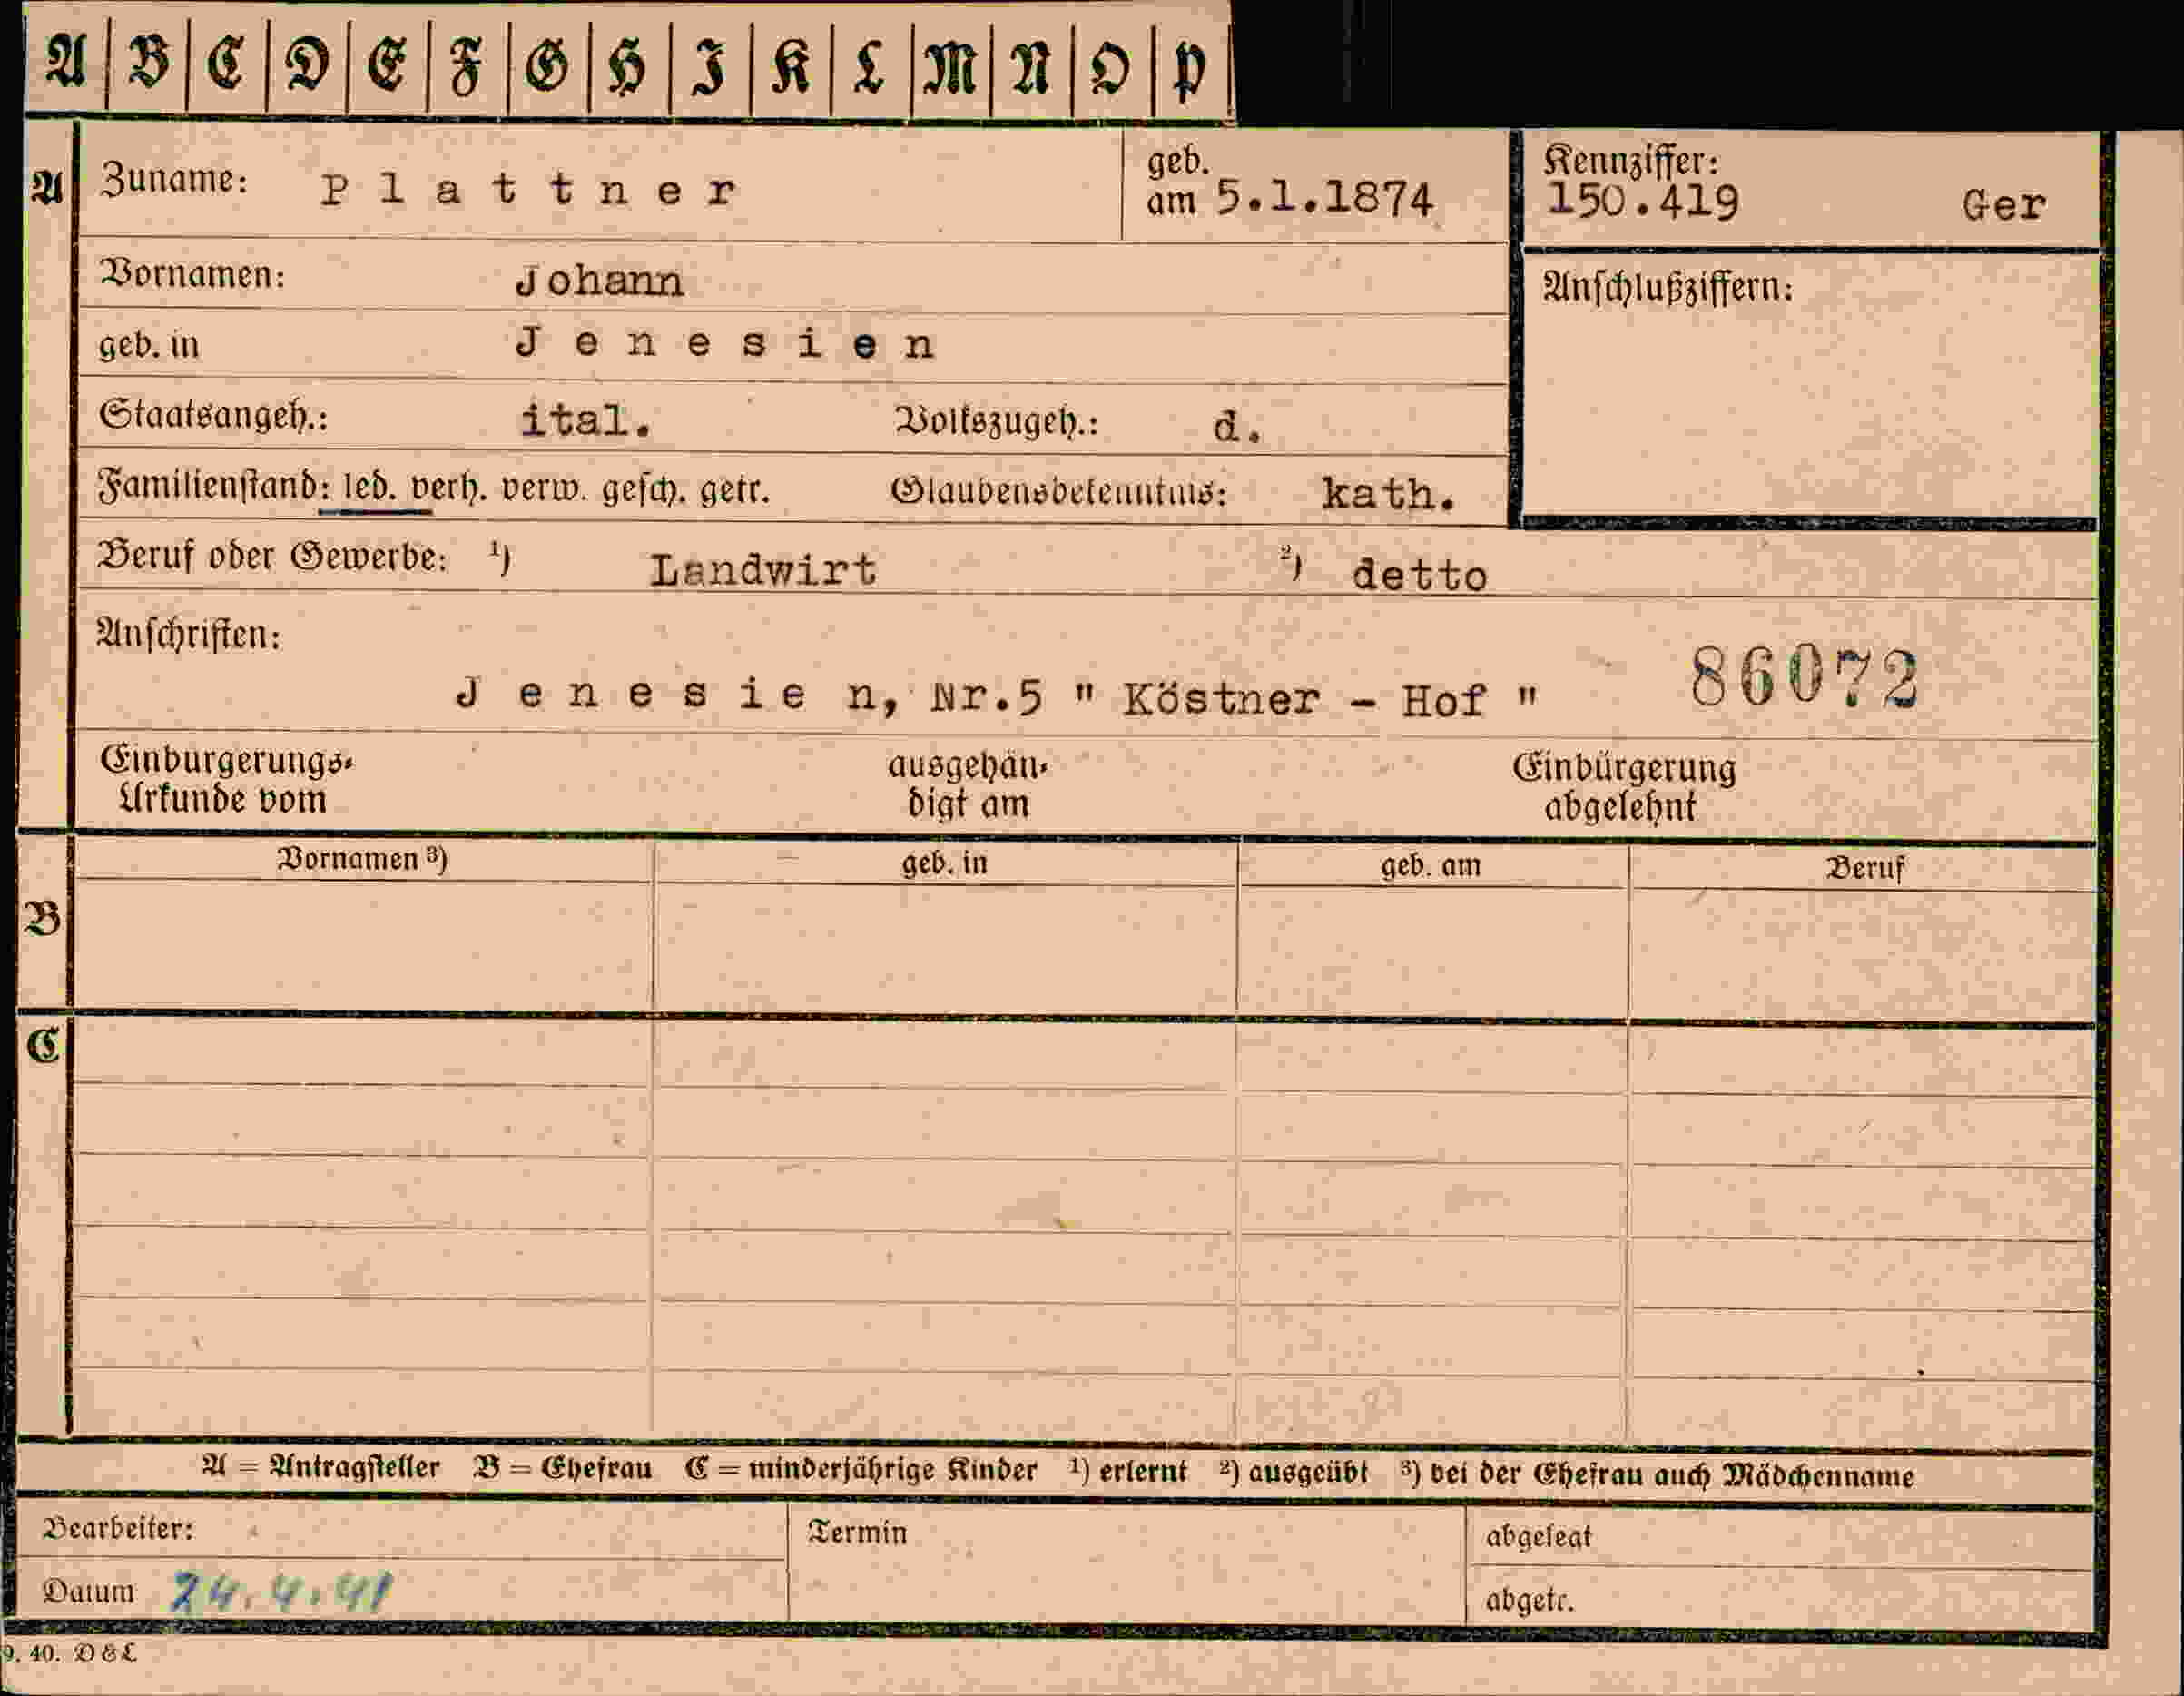 A B C D E F G H I K L M N O P
A Zuname: Plattner geb. am 5.1.1874 Kennziffer: 150.419 Ger
Vornamen: Johann Anschlußziffern:
geb. in Jenesien
Staatsangeh.: ital. Volkszugeh.: d.
Familienstand: led. verh. verw. gesch. getr. Glaubensbekenntnis: kath.
Beruf oder Gewerbe: 1) Landwirt 2) detto
Anschriften:
Jenesien, Nr.5 " Köstner - Hof " 86072
Einbürgerungs- ausgehän- Einbürgerung
Urkunde vom digt am abgelehnt
Vornamen 3) geb. in geb. am Beruf
B
C
A = Antragsteller B = Ehefrau C = minderjährige Kinder 1) erlernt 2) ausgeübt 3) bei der Ehefrau auch Mädchenname
Bearbeiter: Termin abgelegt
Datum 24.4.41 abgetr.
9. 40. D & L